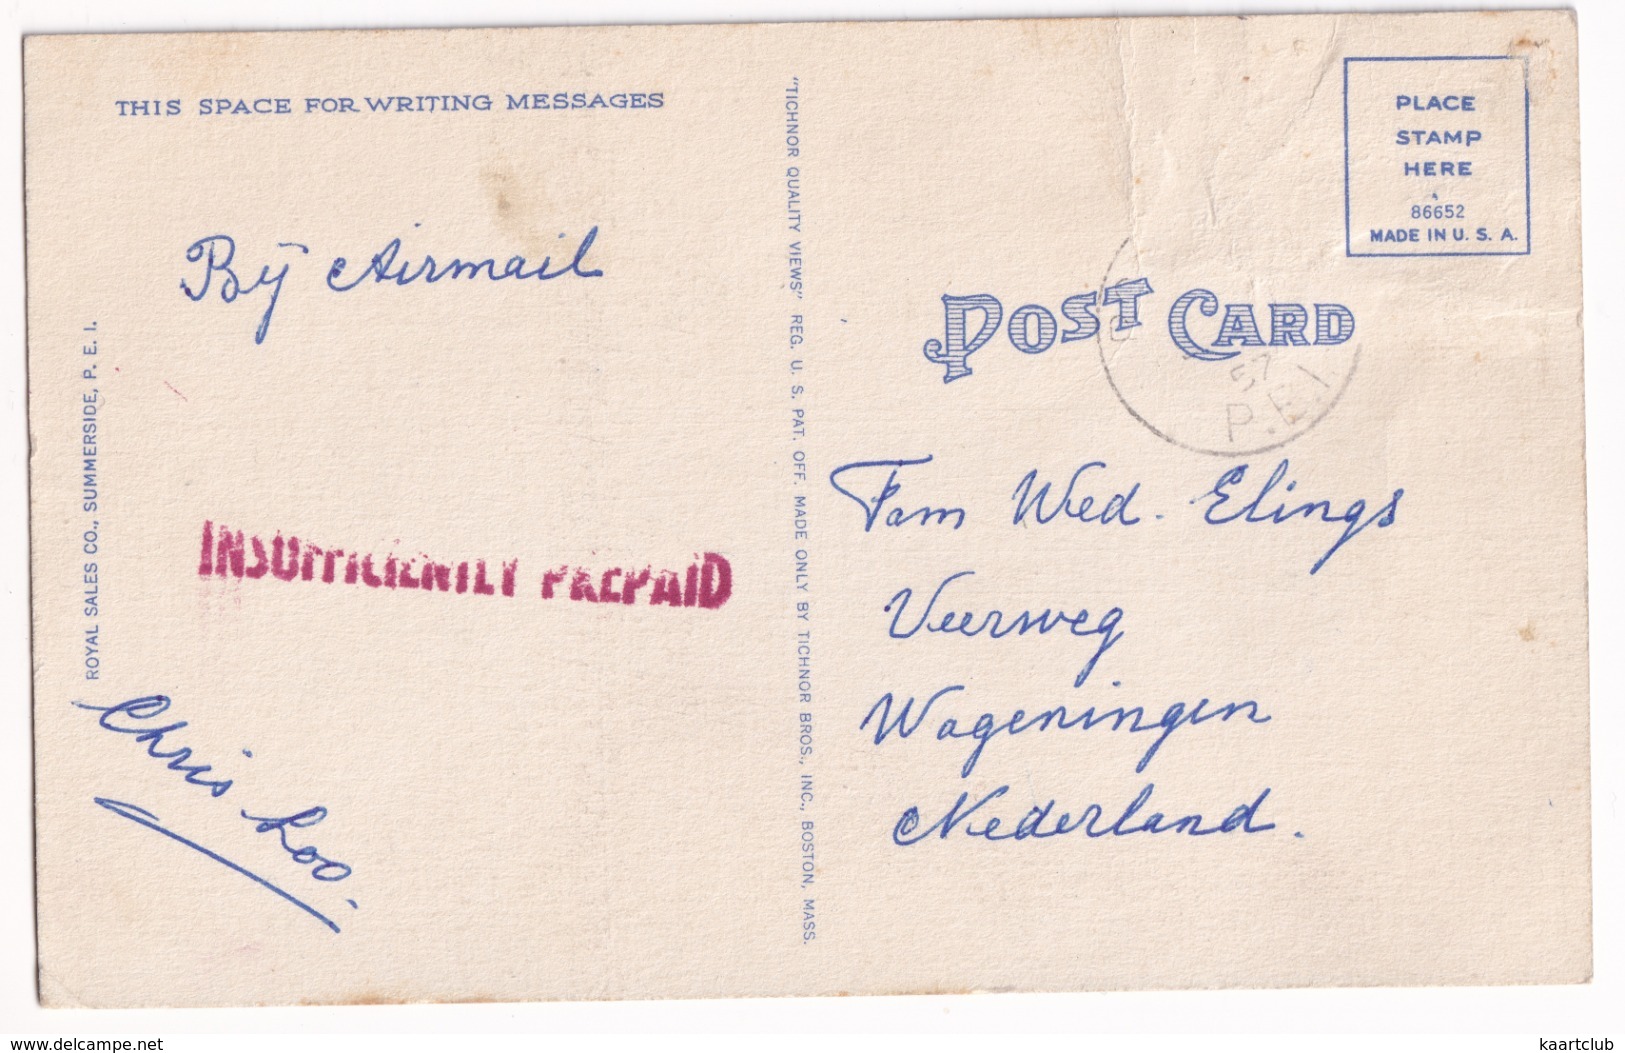 THIS SPACE FOR WRITING MESSAGES
By Airmail
INSUFFICIENTLY PREPAID
Chris Loo.
ROYAL SALES CO., SUMMERSIDE, P. E. I.
"TICHNOR QUALITY VIEWS" REG. U. S. PAT. OFF. MADE ONLY BY TICHNOR BROS., INC., BOSTON, MASS.
PLACE
STAMP
HERE
86652
MADE IN U. S. A.
POST CARD
57
P.E.I.
Fam Wed. Elings
Veerweg
Wageningen
Nederland.
www.delcampe.net
kaartclub